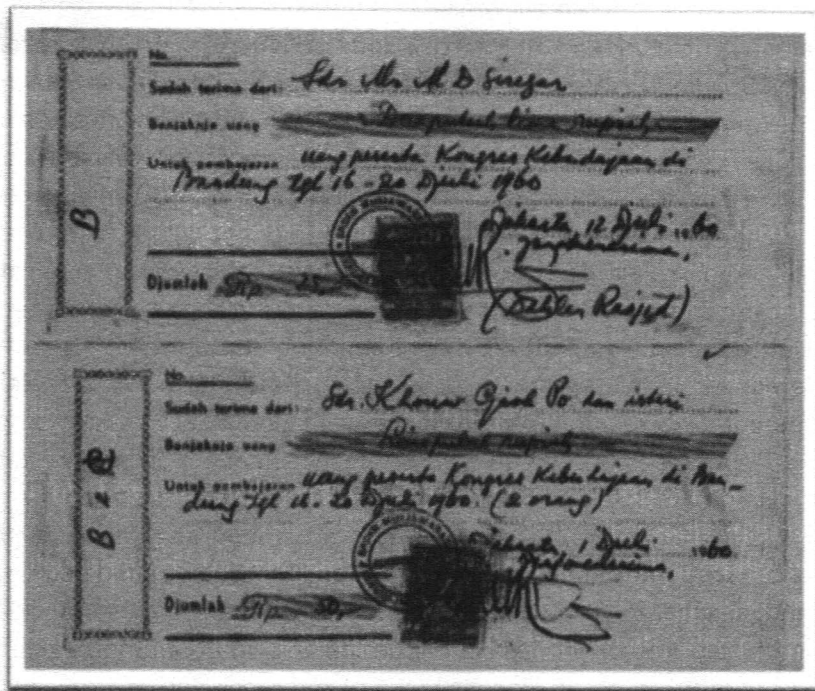 No.
Sudah terima dari: Sdr. Mr. M D Siregar
Banjaknja uang Dua puluh lima rupiah
Untuk pembajaran uang peserta Kongres Kebudajaan di
Bandung tgl 16 - 20 Djuli 1960
B
Djakarta, 12 Djuli 1960
Jang menerima,
Djumlah Rp. 25,-
(Dahlan Rasjid)
No.
Sudah terima dari: Sdr. Khouw Giok Po dan isteri
Banjaknja uang puluh rupiah
Untuk pembajaran uang peserta Kongres Kebudajaan di Ban-
dung tgl 16 - 20 Djuli 1960. (2 orang)
B 2
Djakarta, 1 Djuli 1960
Jang menerima,
Djumlah Rp. 50,-